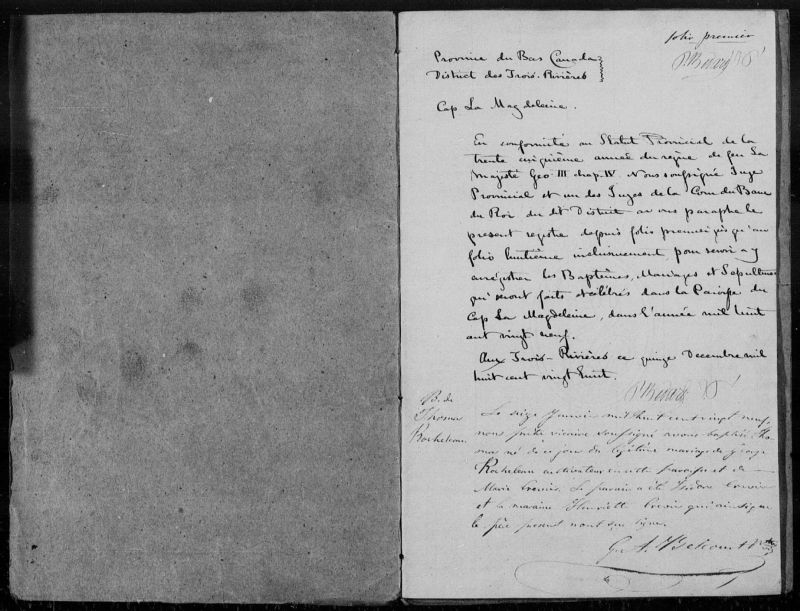 folio premier
Province du Bas Canada
District des Trois-Rivières
Cap La Magdeleine.
En conformité au Statut Provincial de la
trente cinquième année du règne de feu Sa
Majesté Geo III chap. IV. Nous soussigné Juge
Provincial et un des Juges de la Cour du Banc
du Roi du dt District avons paraphé le
present registre depuis folio premier jusqu'au
folio huitième inclusivement, pour servir a y
enrégistrer les Baptêmes, Mariages et Sepultures
qui seront faits et célébrés dans la Paroisse du
Cap La Magdeleine, dans l'année mil huit
cent vingt neuf.
Aux Trois-Rivières ce quinze Decembre mil
huit cent vingt huit.
B. de
Thomas
Rocheleau
Le seize Janvier mil huit cent vingt neuf,
nous prêtre vicaire soussigné avons baptisé Tho-
mas né de ce jour du légitime mariage de
Rocheleau cultivateur en cette paroisse et de
Marie Crevier. Le parrain a été Isidore Crevier
et la maraine Henriette Crevier qui ainsi que
le père present n'ont su signer.
G. A. Belcourt Ptre